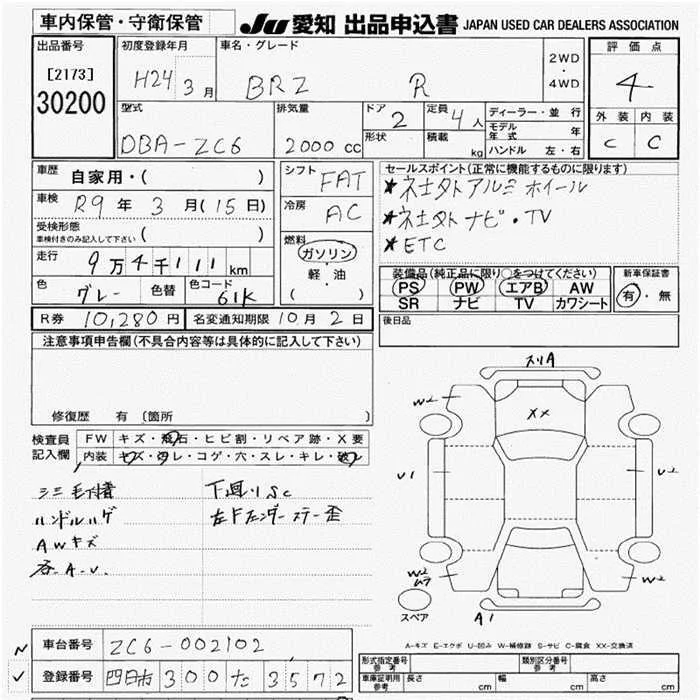 車内保管・守衛保管
JU 愛知 出品申込書 JAPAN USED CAR DEALERS ASSOCIATION
出品番号
[2173]
30200
初度登録年月
H24 3 月
車名・グレード
BRZ R
2WD
・
4WD
評価点
4
外装 内装
C C
型式
DBA-ZC6
排気量
2000 cc
ドア
2
形状
定員
4 人
積載
kg
ディーラー・並行
モデル年式 年
ハンドル 左・右
車歴 自家用・( )
車検 R9 年 3 月(15 日)
受検形態
車検付きのみ記入して下さい ( )
走行 9万4千111 km
色 グレー 色替 色コード 61K
シフト
FAT
冷房
AC
燃料
ガソリン
軽・油
( )
セールスポイント(正常に機能するものに限ります)
★ネ土タトアルミホイール
★ネ土タトナビ・TV
★ETC
装備品(純正品に限り○をつけてください)
PS PW エアB AW
SR ナビ TV カワシート
新車保証書
有・無
R券 10,280 円 名変通知期限 10 月 2 日
後日品
注意事項申告欄(不具合内容等は具体的に記入して下さい)
修復歴 有 〔箇所 〕
検査員記入欄
FW キズ・飛石・ヒビ割・リペア跡・X要
内装 キズ・汚レ・コゲ・穴・スレ・キレ・破レ
下廻りSC
ハンドルハゲ
左Fフェンダーステー歪
AWキズ
各A.U.
スリA
W2
XX
U1
U2
W2
ムラ
W2
A1
スペア
A-キズ E-エクボ U-凹み W-補修跡 S-サビ C-腐食 XX-交換済
車台番号 ZC6-002102
登録番号 四日市 300 た 3572
形式指定番号
参考
類別区分番号
参考
車庫証明用
参考
長さ cm 幅 cm 高さ cm